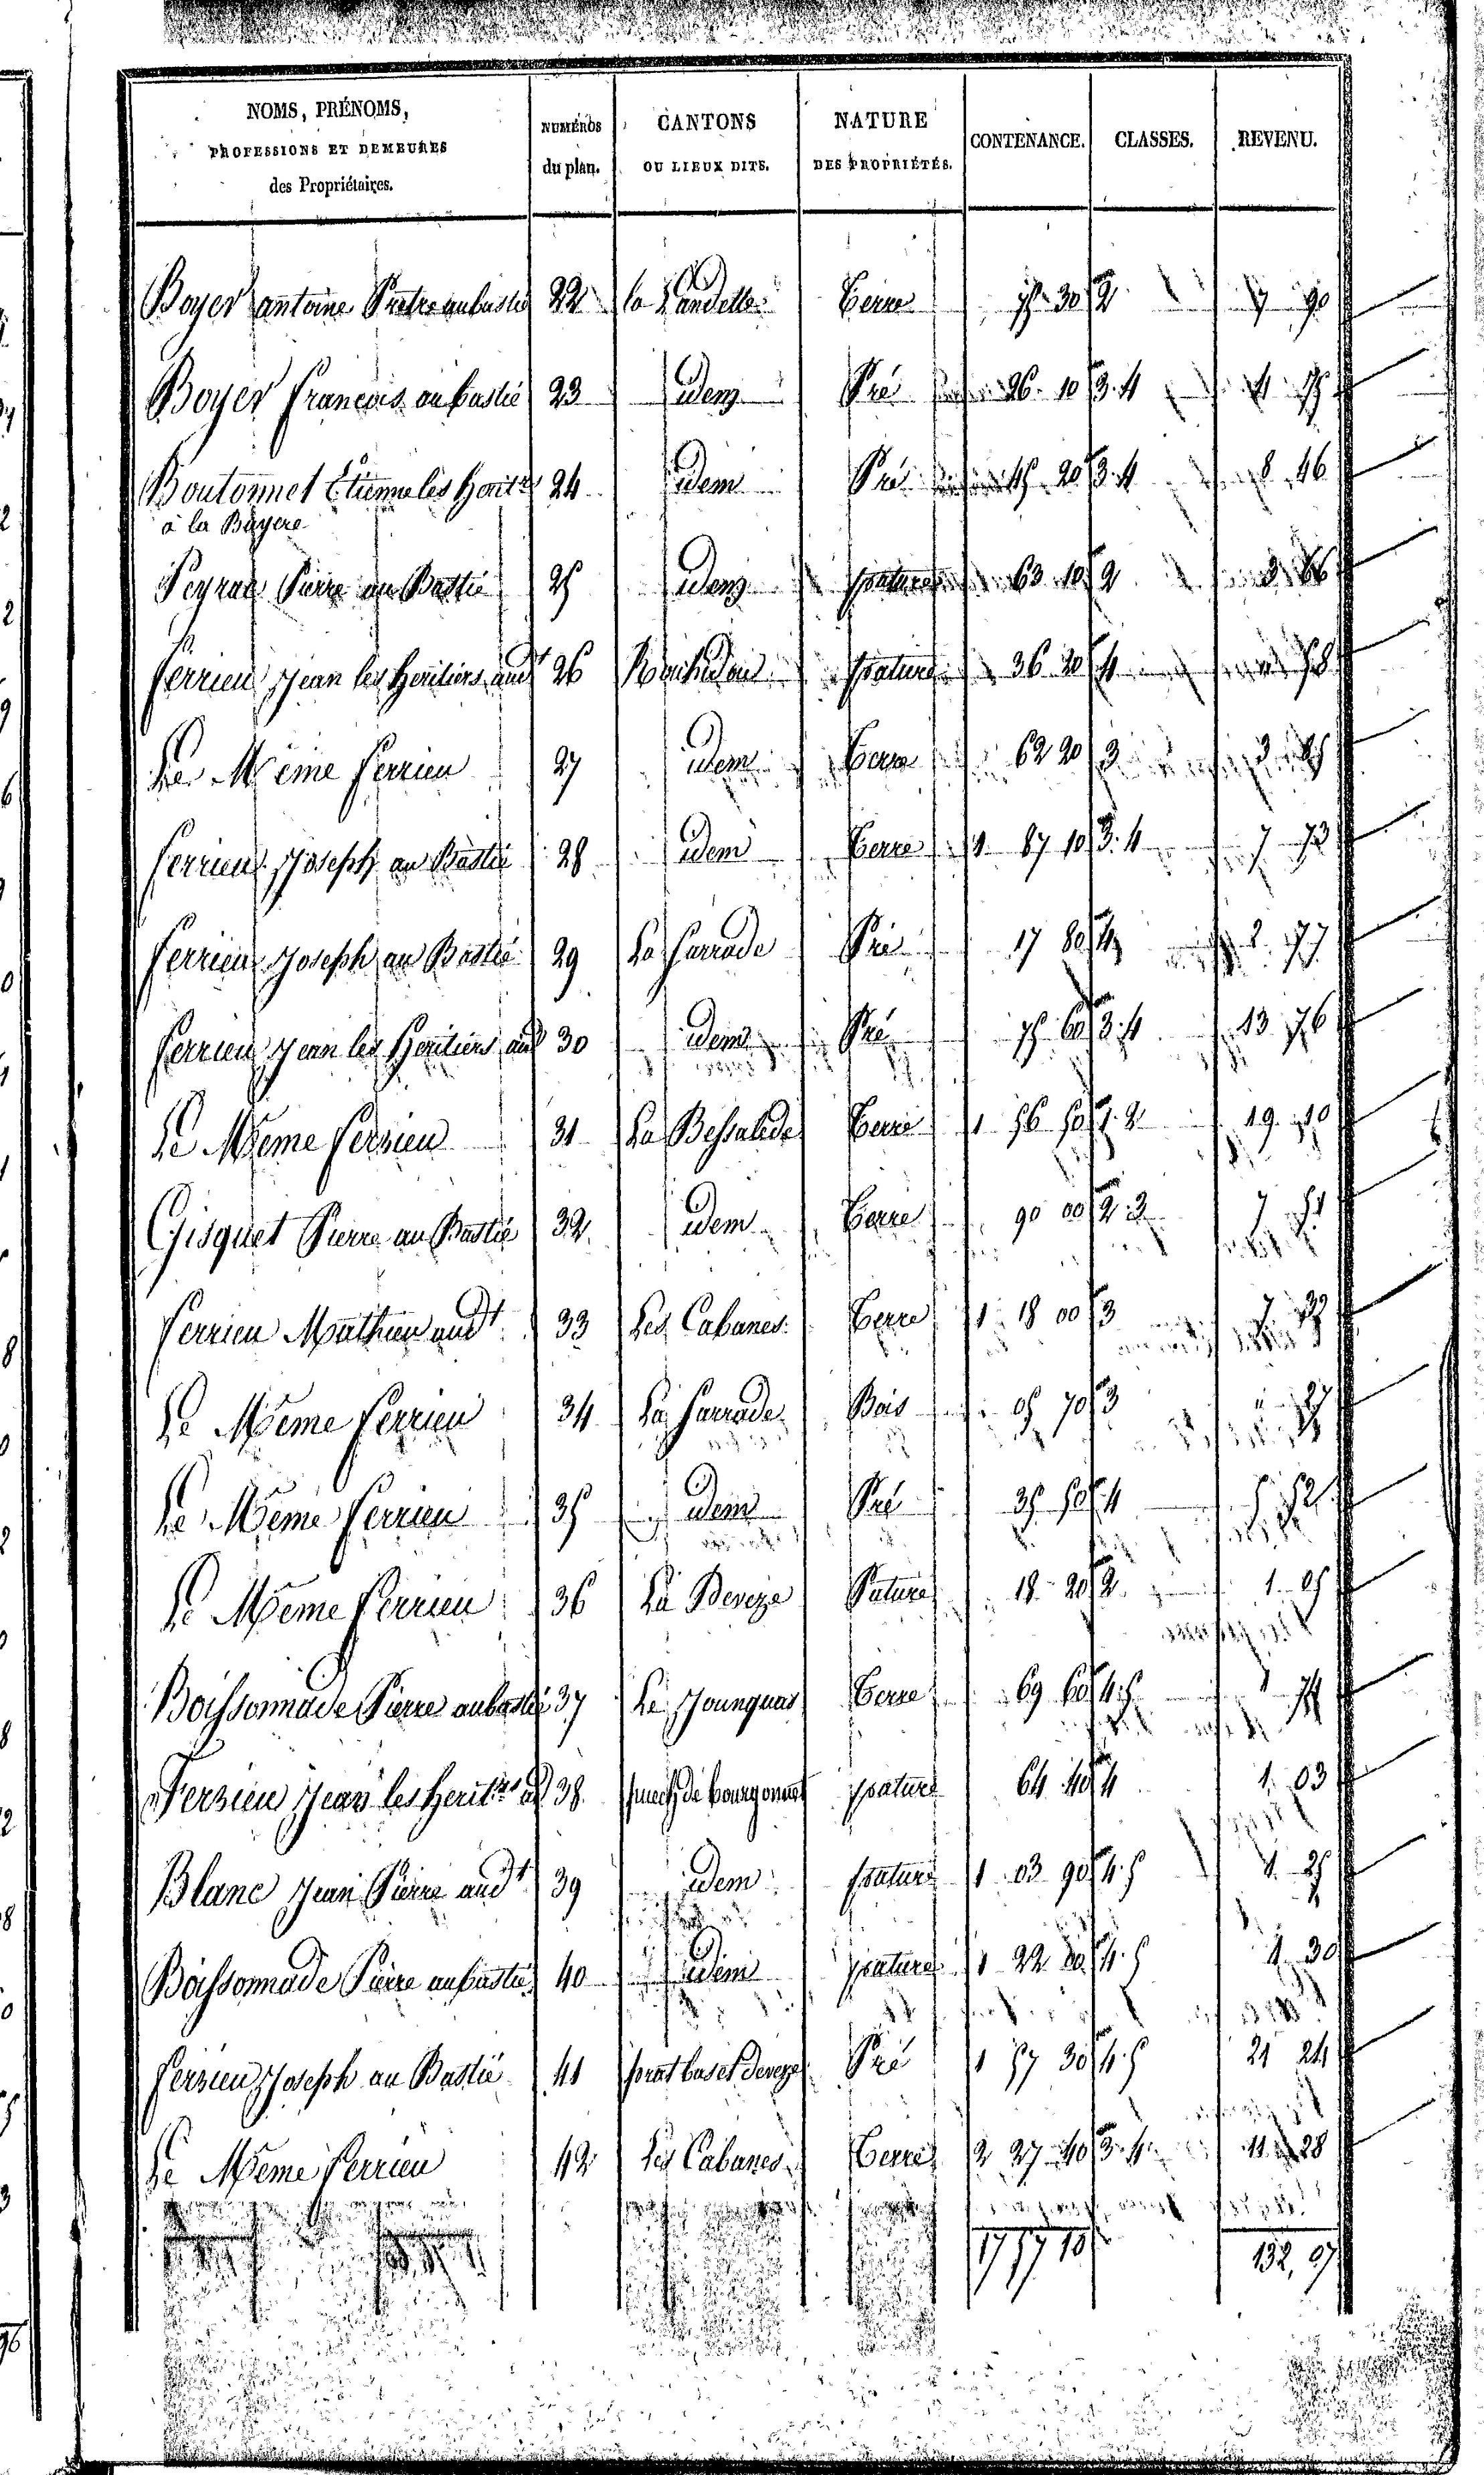 NOMS, PRÉNOMS, PROFESSIONS ET DEMEURES des Propriétaires. NUMÉROS du plan. CANTONS OU LIEUX DITS. NATURE DES PROPRIÉTÉS. CONTENANCE. CLASSES. REVENU.
Boyer antoine Pretre au bastié 22 la Landelle Terre 75 30 2 7 90
Boyer francois au bastié 23 idem Pré 26 10 3.4
Boutonnet Etienne les Horit 24 idem Pré 45 20 3.4 8 46
à la Bayere
Peyrac Pierre au Bastié 25 idem pature 63 10 2 3 66
ferrieu Jean les heritiers aud 26 pature 36 20 4 58
Le Même ferrieu 27 idem Terre 62 20 3
ferrieu Joseph au Bastié 28 idem Terre 1 87 10 3.4 7 72
ferrieu Joseph au Bastié 29 La farrade Pré 17 80 4 2 77
ferrieu Jean les Heritiers aud 30 idem Pré 75 60 3.4 13 76
Le Même ferrieu 31 La Bessalede Terre 1 56 50 1.2 19 10
Gisquet Pierre au Bastié 32 idem Terre 90 00 2.3 7 51
ferrieu Mathieu audt 33 Les Cabanes Terre 1 18 00 3 7
Le Même ferrieu 34 La farrade Bois 05 70 3 27
Le Même ferrieu 35 idem Pré 35 50 4 5 52
Le Même ferrieu 36 La Deveze Pature 18 20 2 1 05
Boissonnade Pierre au bastié 37 Le Jounquas Terre 69 60 4.5 1 74
ferrieu Jean les herit 38 puech de bourgonnet pature 64 40 4 1 03
Blanc Jean Pierre audt 39 idem pature 1 03 90 4.5 1 25
Boissonnade Pierre au bastié 40 idem pature 1 22 80 4.5 1 30
ferrieu Joseph au Bastié 41 prat bas et deveze Pré 1 57 30 4.5 21 24
Le Même ferrieu 42 Les Cabanes Terre 2 27 40 3.4 11 28
17 57 10 132, 07